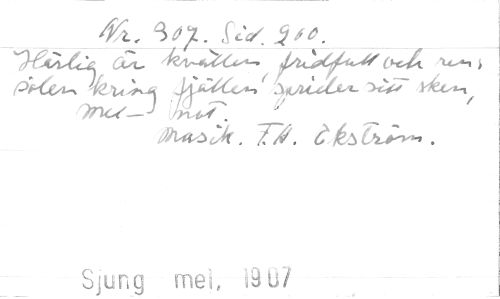 Nr. 307. Sid. 200.
Härlig är kvällen fridfull och ren,
solen kring fjällen sprider sitt sken,
mel- not.
Musik. F.A. Ekström.
Sjung mel, 1907